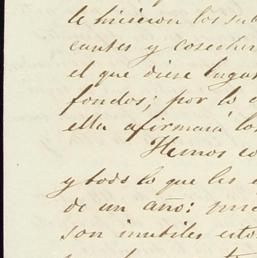 le hicieron los sub
cantes y coseche
el que diese lugar
fondos; por lo
ella afirmará los
Hemos co
y todo lo que les
de un año:
son inutiles esto